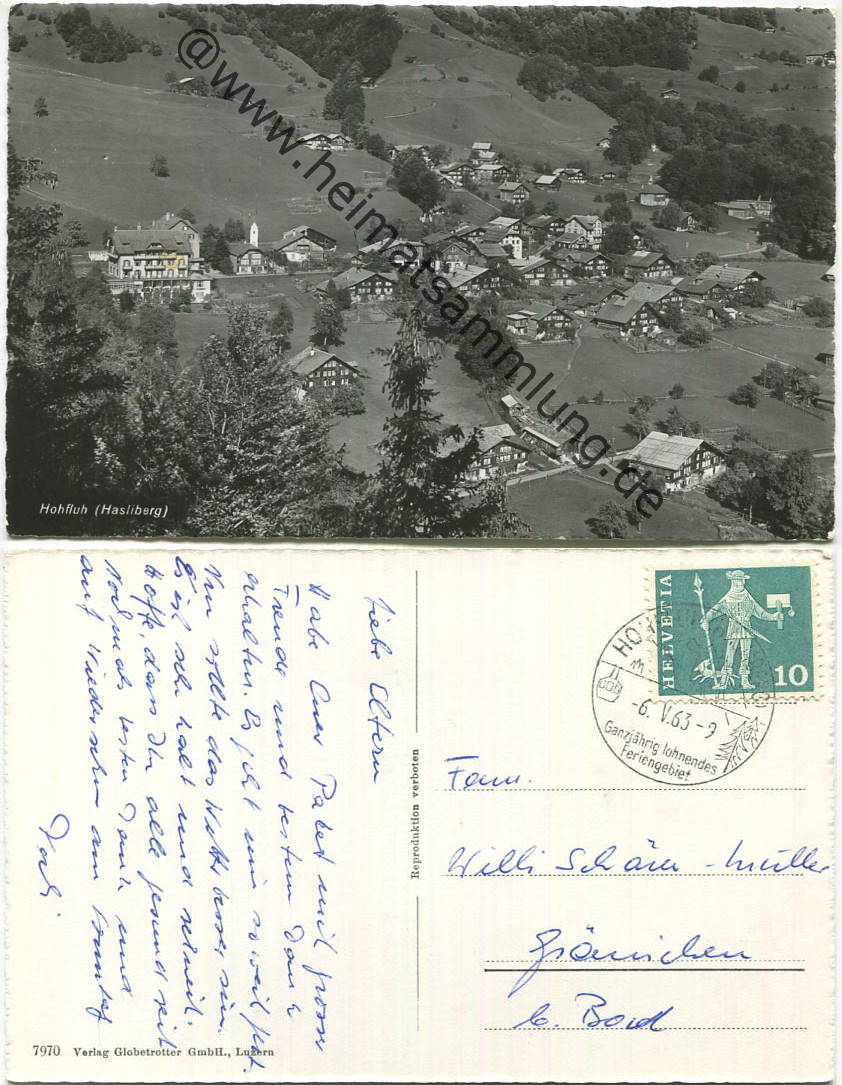 @www.heimatsammlung.de
Hohfluh (Hasliberg)
Liebe Eltern
Habe Euer Paket mit grosser
Freude und bestem Dank
erhalten. Es geht mir soweit gut.
Nur sollte das Wetter besser sein.
Es ist sehr kalt und schneit.
Hoffe, dass Ihr alle gesund seit
Nochmals besten Dank und
auf Wiedersehen am Sonntag
Reproduktion verboten
HELVETIA
10
-6. V. 63 - 9
Ganzjährig lohnendes
Feriengebiet
Fam.
Willi Schärer - Müller
Gränichen
7970 Verlag Globetrotter GmbH., Luzern